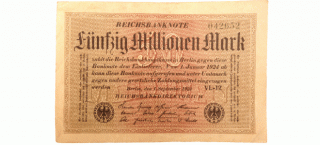 REICHSBANKNOTE
042652
Fünfzig Millionen Mark
zahlt die Reichsbankhauptkasse in Berlin gegen diese
Banknote dem Einlieferer. Vom 1. Januar 1924 ab
kann diese Banknote aufgerufen und unter Umtausch
gegen andere gesetzliche Zahlungsmittel eingezogen
werden
Berlin, den 1. September 1923
VL-12
REICHSBANKDIREKTORIUM